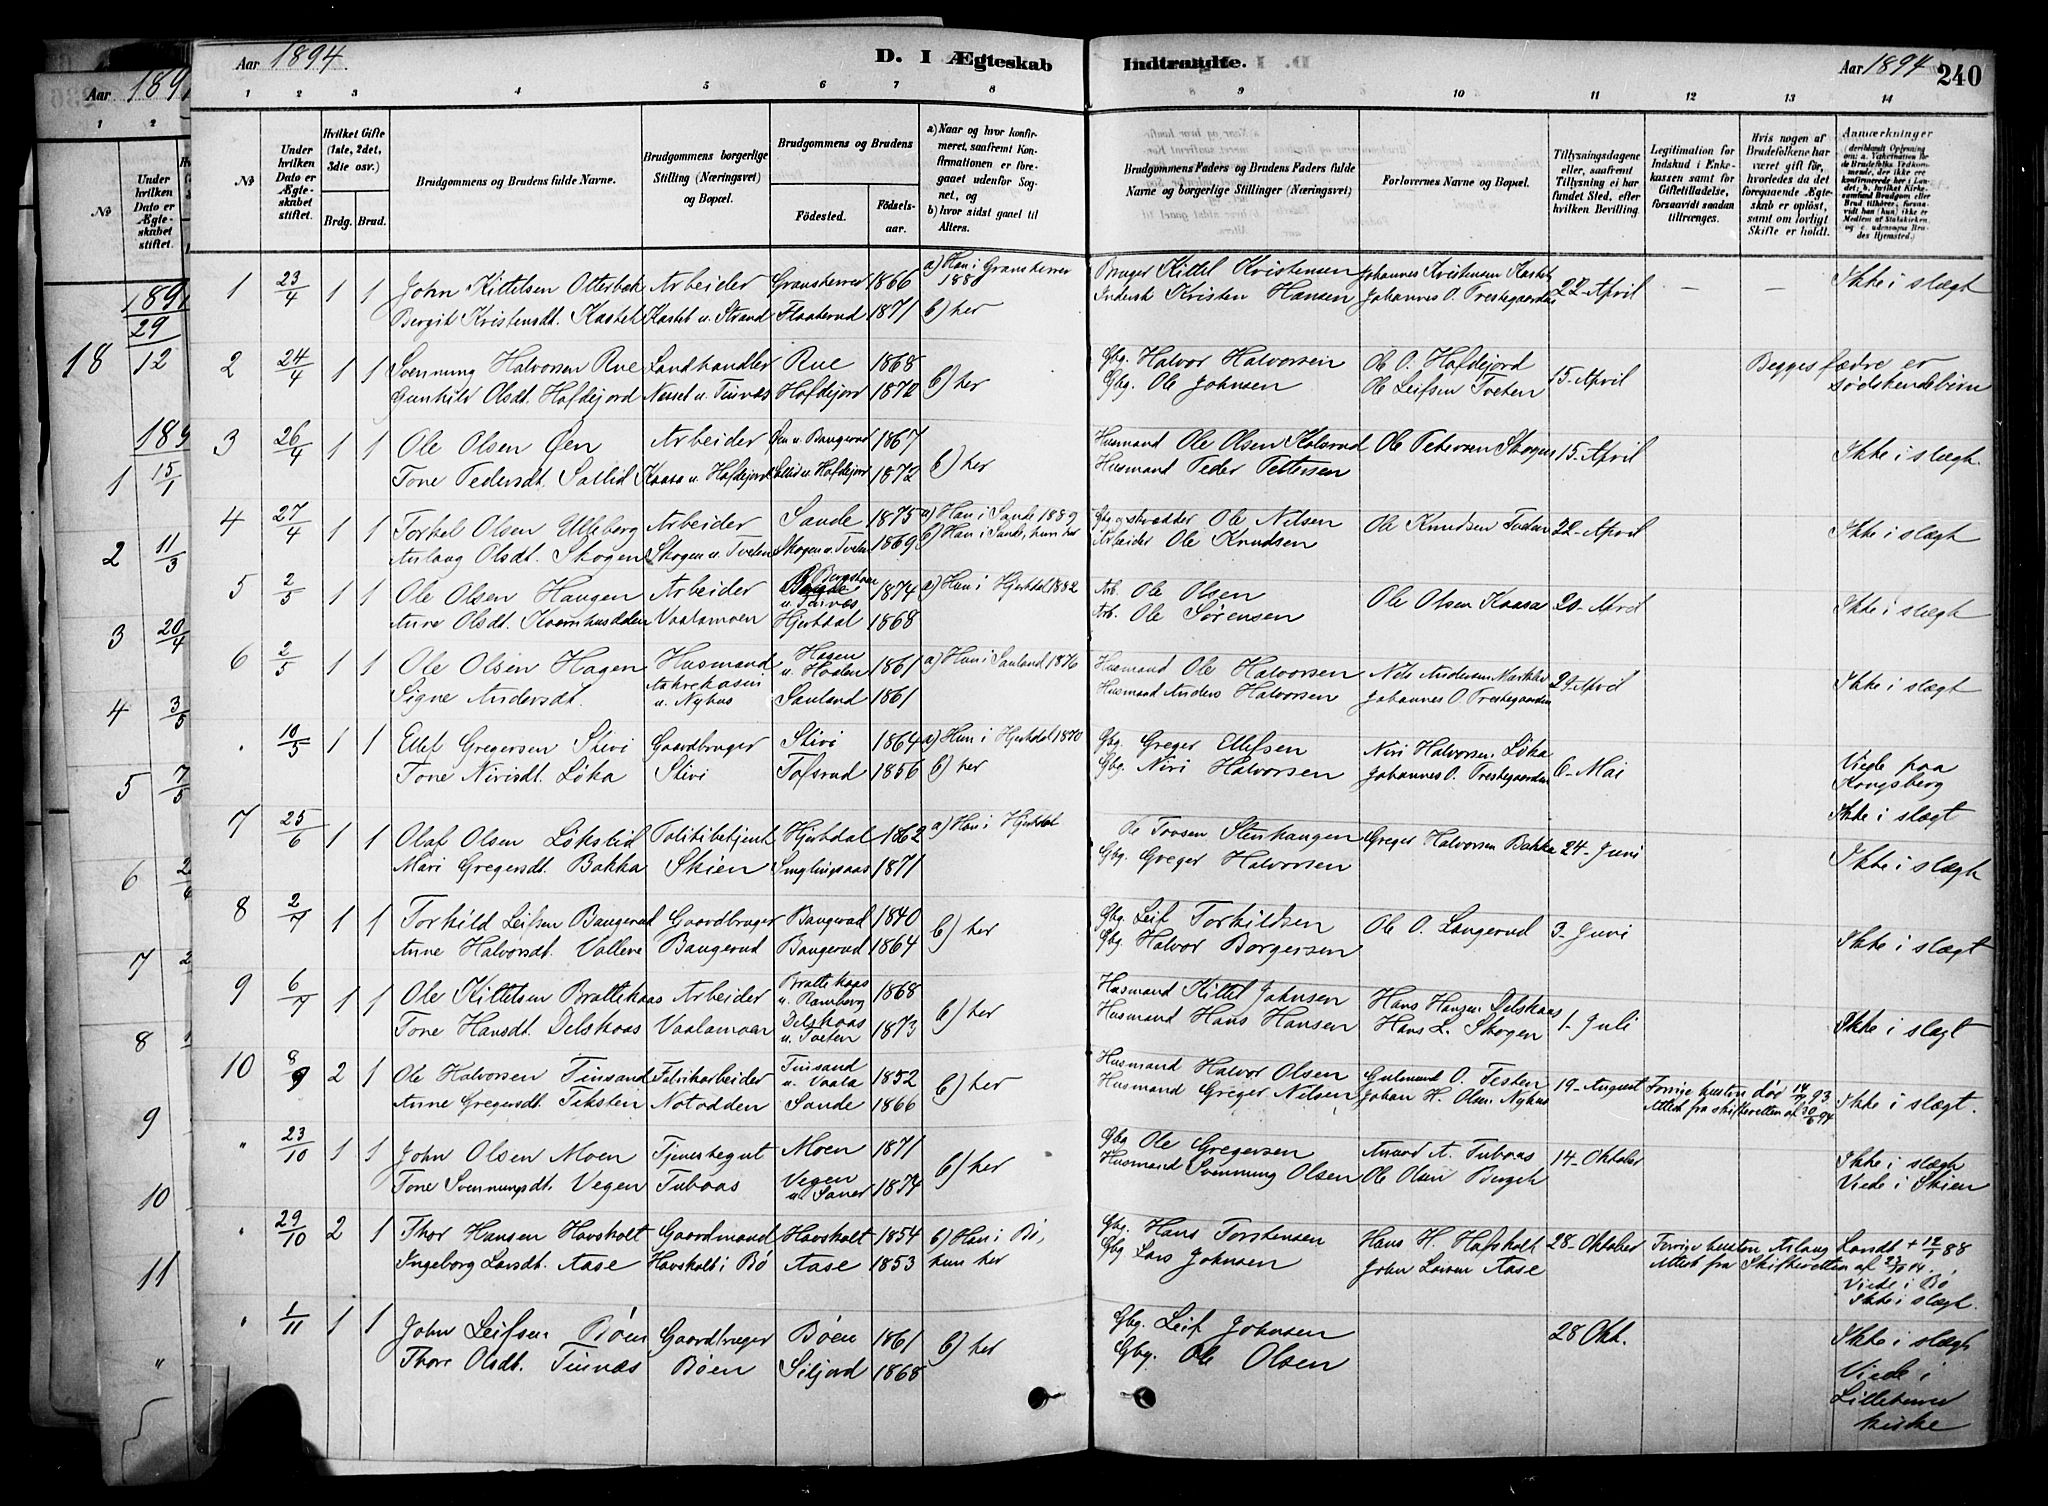 Aar 1894.
D. I Ægteskab Indtraadte.
Aar 1894
240
1 2 3 4 5 6 7 8 9 10 11 12 13 14
No
Under hvilken Dato er Ægteskabet stiftet.
Hvilket Gifte (1ste, 2det, 3die osv.)
Brdg. Brud.
Brudgommens og Brudens fulde Navne.
Brudgommens borgerlige Stilling (Næringsvei) og Bopæl.
Brudgommens og Brudens
Fødested. Fødselsaar.
a) Naar og hvor konfirmeret, saafremt Konfirmationen er foregaaet udenfor Sognet, og
b) hvor sidst gaaet til Alters.
Brudgommens Faders og Brudens Faders fulde Navne og borgerlige Stillinger (Næringsvei)
Forlovernes Navne og Bopæl.
Tillysningsdagene eller, saafremt Tillysning ei har fundet Sted, efter hvilken Bevilling.
Legitimation for Indskud i Enkekassen samt for Giftetilladelse, forsaavidt saadan tiltrænges.
Hvis nogen af Brudefolkene har været gift før, hvorledes da det foregaaende Ægteskab er opløst, samt om lovligt Skifte er holdt.
Anmærkninger
1 23/4 1 1 John Kittelsen Otterbek Arbeider Gransherred 1866 a) Han i Gransherred 1880 Bruger Kittel Kristensen Johannes Kristensen Kastet 22 April – – Ikke i slægt
Bergit Kristensdt. Kastet Kastet u. Strand Flaaterud 1871 b) her Inderst Kristen Hansen Johannes O. Prestegaarden
2 24/4 1 1 Svennung Halvorsen Rue Landhandler Rue 1868 b) her Gbg. Halvor Halvorsen Ole O. Hafdejord 15 April Begges fædre er
Gunhild Olsdt. Hafdejord Nesset u. Tinnæs Hafdejord 1872 Gbg. Ole Johnsen Ole Leifsen Tveten sødskendebørn
3 26/4 1 1 Ole Olsen Øen Arbeider Øen u. Baugerud 1867 b) her Husmand Ole Olsen Kolsrud Ole Petersen Skogen 15 April Ikke i slægt.
Tone Pedersdt. Sollid Kaasa u. Hafdejord Sollid u. Hafdejord 1872 Husmand Peder Pettersen
4 27/4 1 1 Torkel Olsen Elleberg Arbeider Sande 1875 a) Han i Sande 1889 Gbg. og skrædder Ole Nilsen Ole Knudsen Tveten 22 April Ikke i slægt
Aslaug Olsdt. Skogen Skogen u. Tveten Skogen u. Tveten 1869 b) Han i Sande, hun her Arbeider Ole Knudsen
5 2/5 1 1 Ole Olsen Haugen Arbeider u. Tinnæs 1874 a) Hun i Hjertdal 1882 Arb. Ole Olsen Ole Olsen Kaasa 20 April Ikke i slægt
Anne Olsdt. Vaalamoen Hjertdal 1868 Arb. Ole Sørensen
6 2/5 1 1 Ole Olsen Hagen Husmand Hagen u. Haaden 1861 a) Hun i Sauland 1876 Husmand Ole Halvorsen Nils Andersen 29 April Ikke i slægt
Signe Andersdt. u. Nyhus Sauland 1861 Husmand Anders Halvorsen Johannes O. Prestegaarden
" 10/5 1 1 Ellef Gregersen Stivi Gaardbruger Stivi 1864 a) Hun i Hjertdal 1870 Gbg. Greger Ellefsen Niri Halvorsen Løka 6 Mai Viede paa Kongsberg
Tone Nirisdt. Løka Stivi Tofsrud 1856 b) her Gbg. Niri Halvorsen Johannes O. Prestegaarden Ikke i slægt
7 25/6 1 1 Olaf Olsen Løkslid Politibetjent Hjertdal 1862 a) Han i Hjertdal Ole Tovsen Stenhaugen Greger Halvorsen Bakka 24 Juni Ikke i slægt
Mari Gregersdt. Bakka Skien 1871 Gbg. Greger Halvorsen
8 2/7 1 1 Torkild Leifsen Baugerud Gaardbruger Baugerud 1840 b) her Gbg. Leif Torkildsen Ole O. Langerud 3 Juni Ikke i slægt
Anne Halvorsdt. Valleve Baugerud Baugerud 1864 Gbg. Halvor Borgersen
9 6/7 1 1 Ole Kittelsen Brattekaas Arbeider Brattekaas u. Ramberg 1868 b) her Husmand Kittel Johnsen Hans Hansen Delskaas 1 Juli Ikke i slægt
Tone Hansdt. Delskaas Vaalamoen Delskaas u. Tveten 1873 Husmand Hans Hansen Hans L. Skogen
10 8/9 2 1 Ole Halvorsen Tinsand Fabrikarbeider Tinsand u. Vaala 1852 b) her Husmand Halvor Olsen Gulmund O. Testen 19 August Forrige hustru død 14/7 93. Ikke i slægt.
Anne Gregersdt. Teksten Notodden Sande 1866 Husmand Greger Nilsen Johan H. Olsen Nyhus Attest fra skifteretten af 30/6 94
" 23/10 1 1 John Olsen Moen Tjenestegut Moen 1871 b) her Gbg. Ole Gregersen A. Tuboas 14 Oktober Ikke i slægt
Tone Svennungsdt. Vegen Tuboas Vegen u. Saner 1874 Husmand Svennung Olsen Ole Olsen Viede i Skien
" 29/10 2 1 Thor Hansen Havsholt Gaardmand Havsholt 1854 b) Han i Bø, Gbg. Hans Torstensen Hans H. Hafsholt 28 Oktober Forrige hustru Aslaug Larsdt + 12/1 88
Ingeborg Larsdt. Aase Havsholt i Bø Aase 1853 hun her Gbg Lars Johnsen John Larsen Aase Attest fra Skifteretten af Viede i Bø, Ikke i slægt.
" 1/11 1 1 John Leifsen Bøen Gaardbruger Bøen 1861 b) her Gbg. Leif Johnsen 28 Okt. Ikke i slægt
Thore Olsdt. Tinnæs Bøen Siljord 1868 Gbg. Ole Olsen Viede i Lilleherred kirke